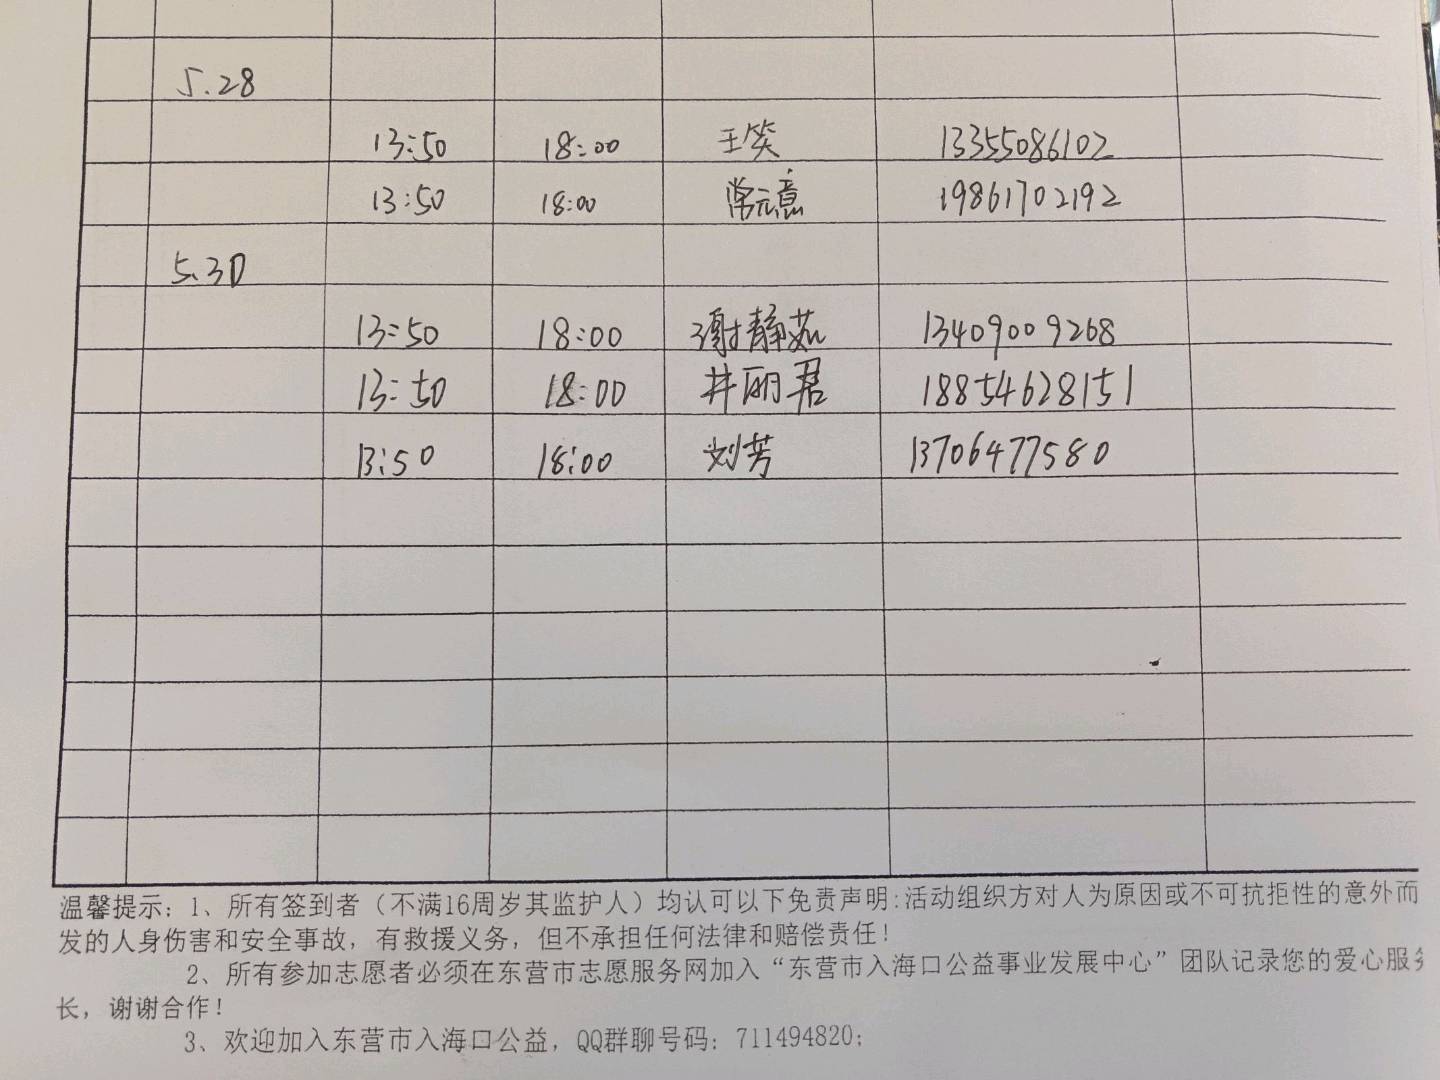 5.28
13:50 18:00 王笑 13355086102
13:50 18:00 常元意 19861702192
5.30
13:50 18:00 谢静茹 13409009268
13:50 18:00 井丽君 18854628151
13:50 18:00 刘芳 13706477580
温馨提示：1、所有签到者（不满16周岁其监护人）均认可以下免责声明：活动组织方对人为原因或不可抗拒性的意外而
发的人身伤害和安全事故，有救援义务，但不承担任何法律和赔偿责任！
2、所有参加志愿者必须在东营市志愿服务网加入“东营市入海口公益事业发展中心”团队记录您的爱心服务
长，谢谢合作！
3、欢迎加入东营市入海口公益，QQ群聊号码：711494820；